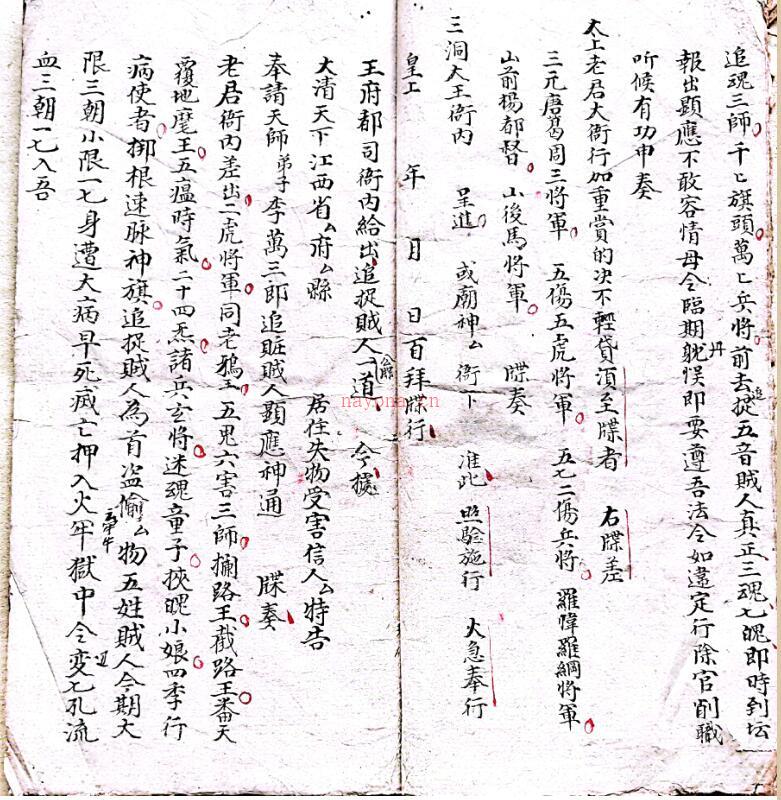 追魂三師千〻旗頭萬〻兵將前去捉五音賊人真正三魂七魄即時到坛
報出顕應不敢容情毋令臨期躭悞即要遵吾法令如違定行除官削職
听候有功申奏
太上老君大衙行如重賞的决不輕貸須至牒者 右牒差
三元唐葛周三將軍 五傷五虎將軍 五七二傷兵將 羅幃羅網將軍
山前楊都督 山後馬將軍 牒奏
三洞大王衙内 呈進 或廟神厶衙下 准此 照驗施行 火急奉行
皇上 年 月 日百拜牒行
王府都司衙内給出追捉賊人一道 今據
大清天下江西省厶府厶縣 居住失物受害信人厶特告
奉請天師弟子李萬三郎追賍賊人顕應神通 牒奏
老君衙内差出二虎將軍同老鴉王五鬼六害三師攔路王截路王番天
覆地魔王五瘟時氣二十四炁諸兵玄將迷魂童子挾魄小娘四季行
病使者挪根速脉神旗追捉賊人為首盗偷厶物五姓賊人今期大
限三朝小限一七身遭大病早死滅亡押入火牢獄中令變七孔流
血三朝一七入吾
nayona.cn